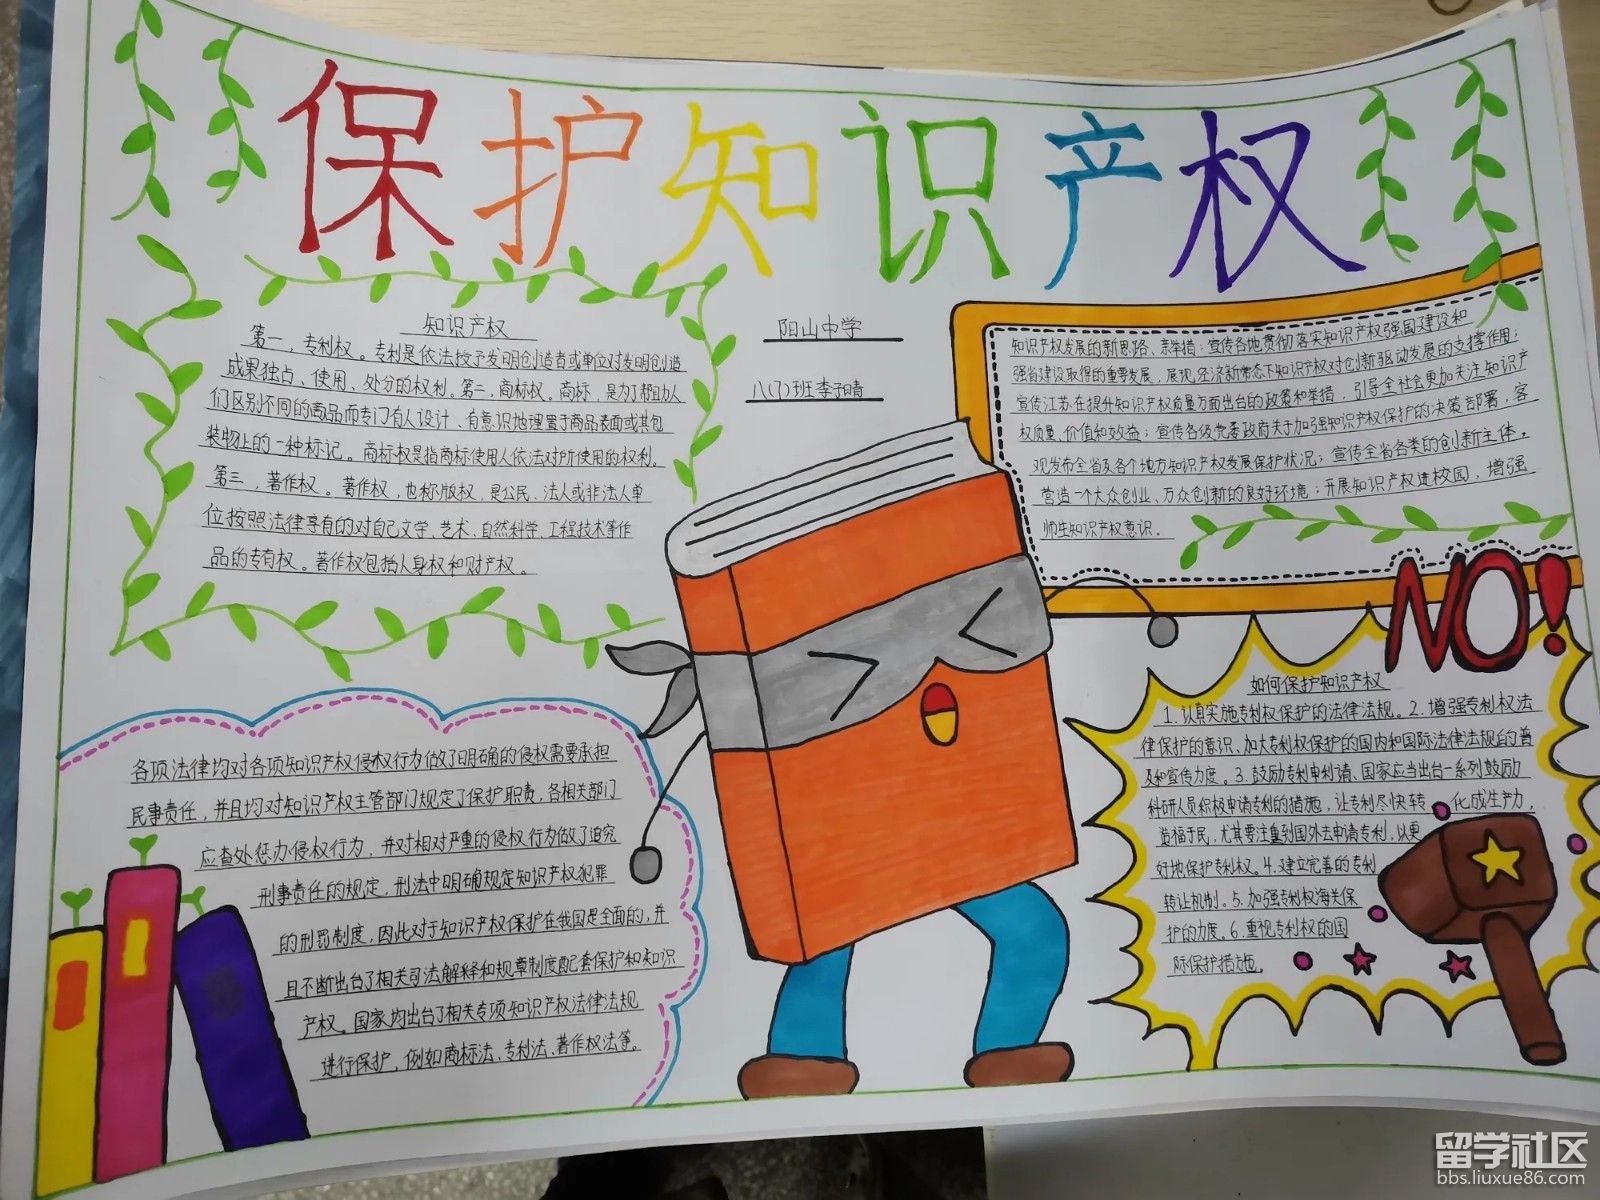 保护知识产权
知识产权
第一，专利权。专利是依法授予发明创造者或单位对发明创造
成果独占、使用、处分的权利。第二，商标权。商标，是为了帮助人
们区别不同的商品而专门有人设计、有意识地理置于商品表面或其包
装物上的一种标记。商标权是指商标使用人依法对所使用的权利。
第三，著作权。著作权，也称版权，是公民、法人或非法人单
位按照法律享有的对自己文学、艺术、自然科学、工程技术等作
品的专有权。著作权包括人身权和财产权。
阳山中学
八(7)班李子晴
知识产权发展的新思路、新举措；宣传各地贯彻落实知识产权强国建设和
强省建设取得的重要发展，展现经济新常态下知识产权对创新驱动发展的支撑作用；
宣传江苏在提升知识产权质量方面出台的政策和举措，引导全社会更加关注知识产
权质量、价值和效益；宣传各级党委政府关于加强知识产权保护的决策部署，客
观发布全省及各个地方知识产权发展保护状况；宣传全省各类的创新主体。
营造一个大众创业、万众创新的良好环境；开展知识产权进校园，增强
师生知识产权意识。
NO!
各项法律均对各项知识产权侵权行为做了明确的侵权需要承担
民事责任，并且均对知识产权主管部门规定了保护职责，各相关部门
应查处惩办侵权行为，并对相对严重的侵权行为做了追究
刑事责任的规定，刑法中明确规定知识产权犯罪
的刑罚制度，因此对于知识产权保护在我国是全面的，并
且不断出台了相关司法解释和规章制度配套保护和知识
产权。国家均出台了相关专项知识产权法律法规
进行保护，例如商标法、专利法、著作权法等。
如何保护知识产权
1.认真实施专利权保护的法律法规。2.增强专利权法
律保护的意识、加大专利权保护的国内和国际法律法规的普
及和宣传力度。3.鼓励专利申请、国家应当出台一系列鼓励
科研人员积极申请专利的措施，让专利尽快转化成生产力，
造福于民，尤其要注重到国外去申请专利，以更
好地保护专利权。4.建立完善的专利
转让机制。5.加强专利权海关保
护的力度。6.重视专利权的国
际保护措施。
留学社区
bbs.liuxue86.com